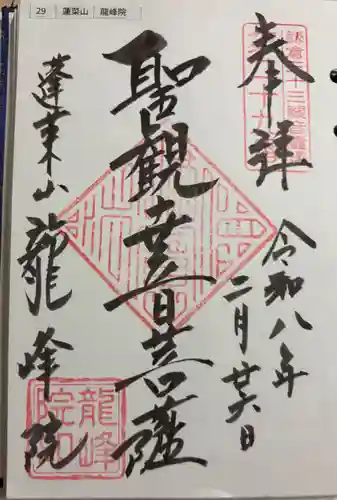 29 蓬莱山 龍峰院
奉拝
令和八年
二月廿六日
聖観世音菩薩
蓬莱山 龍峰院
鎌倉三十三観音霊場
第二十九番
龍峰
院印